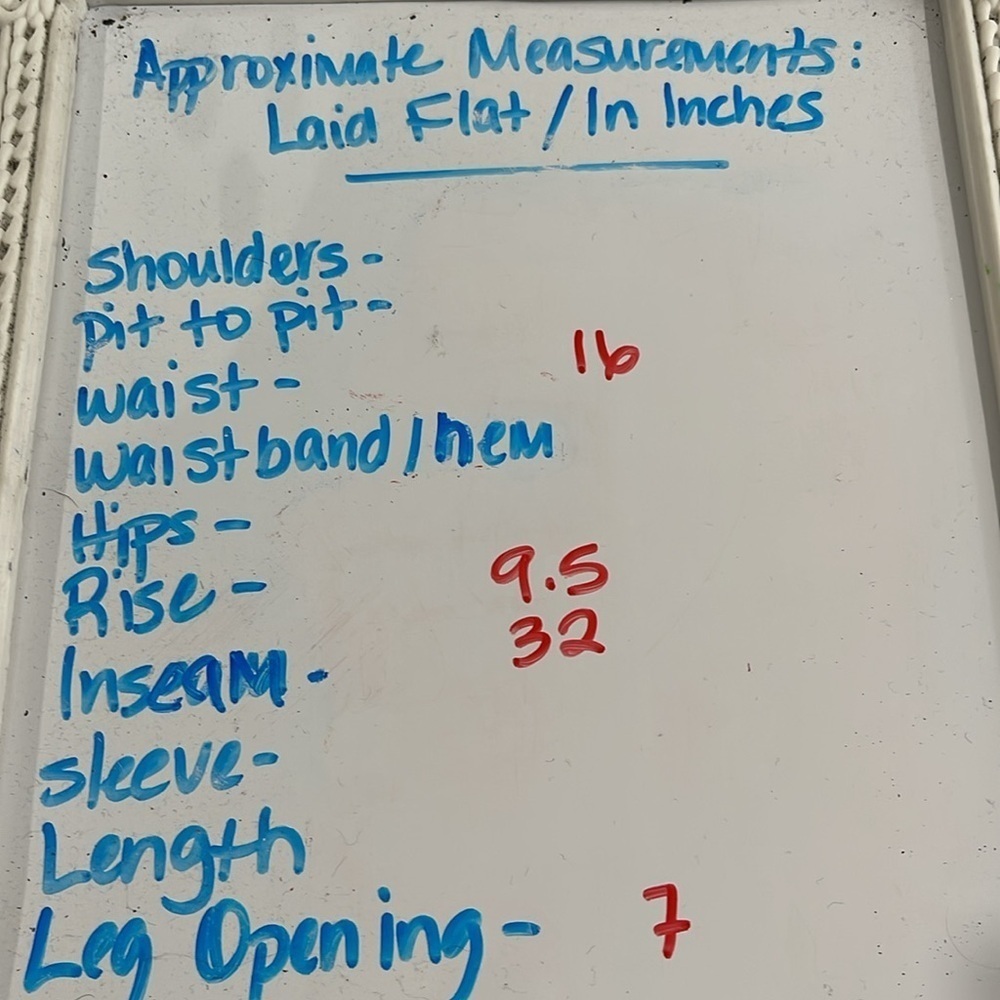 Approximate Measurements:
Laid Flat / In Inches
Shoulders -
pit to pit -
waist - 16
waistband / hem
Hips -
Rise - 9.5
Inseam - 32
sleeve -
Length
Leg Opening - 7